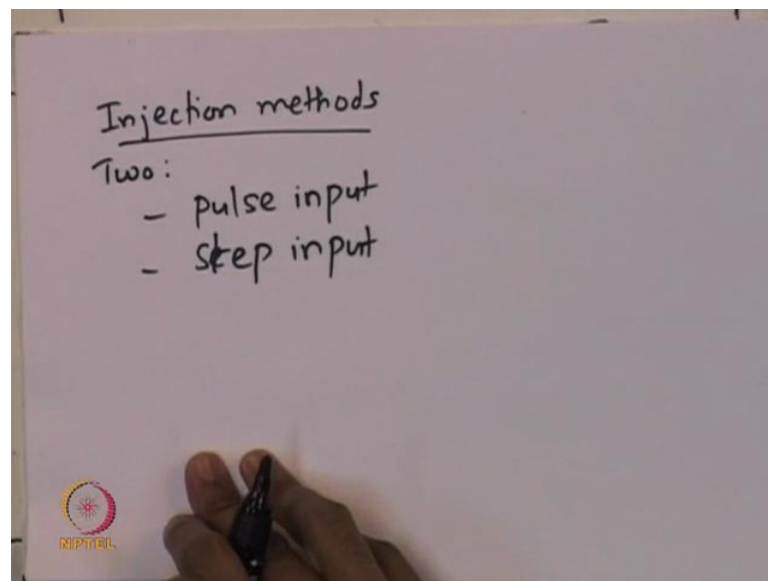 Injection methods
Two:
- pulse input
- step input
NPTEL